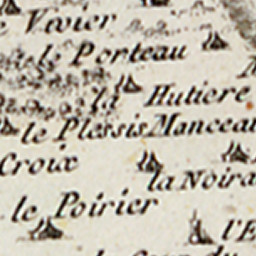 le Vivier
le Porteau
la Hutiere
le Plessis Manceau
Croix
la Noira
le Poirier
l'E